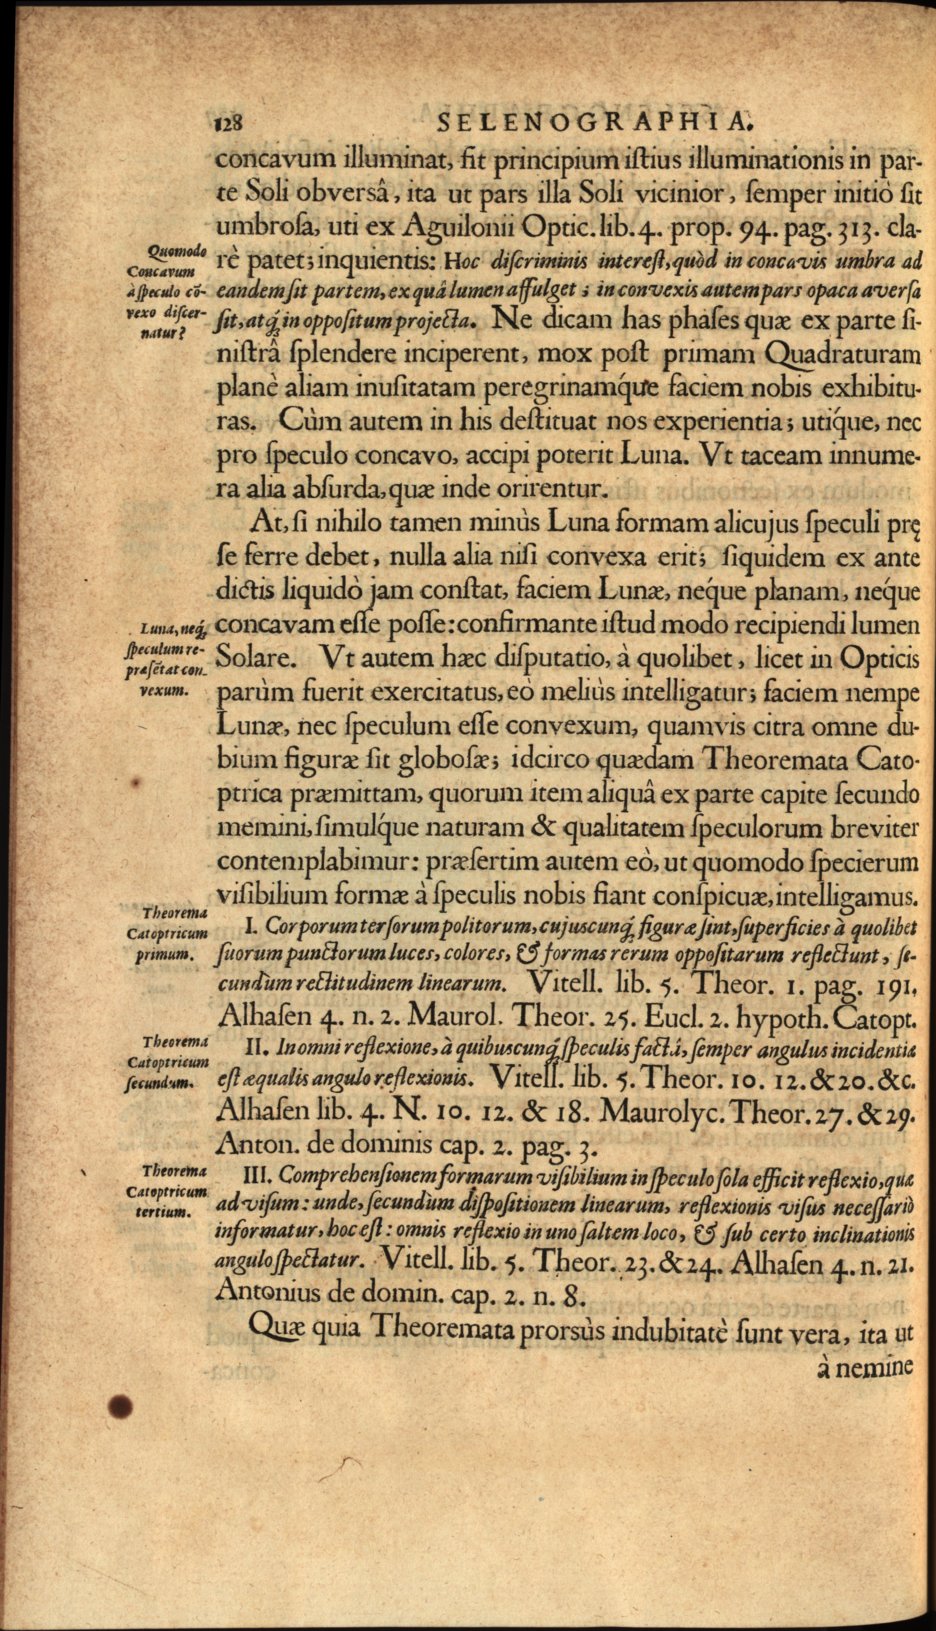 128 SELENOGRAPHIA.
concavum illuminat, fit principium iſtius illuminationis in par-
te Soli obversâ, ita ut pars illa Soli vicinior, ſemper initiò ſit
umbroſa, uti ex Aguilonii Optic. lib. 4. prop. 94. pag. 313. cla-
Quomodo
Concavum
à ſpeculo cõ-
vexo diſcer-
natur?
rè patet; inquientis: Hoc diſcriminis intereſt, quòd in concavis umbra ad
eandem ſit partem, ex quâ lumen affulget; in convexis autem pars opaca averſa
ſit, atq́; in oppoſitum projecta. Ne dicam has phaſes quæ ex parte ſi-
niſtrâ ſplendere inciperent, mox poſt primam Quadraturam
planè aliam inuſitatam peregrinamq́ue faciem nobis exhibitu-
ras. Cùm autem in his deſtituat nos experientia; utiq́ue, nec
pro ſpeculo concavo, accipi poterit Luna. Vt taceam innume-
ra alia abſurda, quæ inde orirentur.
At, ſi nihilo tamen minùs Luna formam alicujus ſpeculi prę
ſe ferre debet, nulla alia niſi convexa erit; ſiquidem ex ante
dictis liquidò jam conſtat, faciem Lunæ, neq́ue planam, neq́ue
Luna, neq́;
ſpeculum re-
præſẽtat con-
vexum.
concavam eſſe poſſe: confirmante iſtud modo recipiendi lumen
Solare. Vt autem hæc diſputatio, à quolibet, licet in Opticis
parùm fuerit exercitatus, eò meliùs intelligatur; faciem nempe
Lunæ, nec ſpeculum eſſe convexum, quamvis citra omne du-
bium figuræ ſit globoſæ; idcirco quædam Theoremata Cato-
ptrica præmittam, quorum item aliquâ ex parte capite ſecundo
memini, ſimulq́ue naturam & qualitatem ſpeculorum breviter
contemplabimur: præſertim autem eò, ut quomodo ſpecierum
viſibilium formæ à ſpeculis nobis fiant conſpicuæ, intelligamus.
Theorema
Catoptricum
primum.
I. Corporum terſorum politorum, cujuscunq́; figuræ ſint, ſuperficies à quolibet
ſuorum punctorum luces, colores, & formas rerum oppoſitarum reflectunt, ſe-
cundùm rectitudinem linearum. Vitell. lib. 5. Theor. 1. pag. 191.
Alhaſen 4. n. 2. Maurol. Theor. 25. Eucl. 2. hypoth. Catopt.
Theorema
Catoptricum
ſecundum.
II. In omni reflexione, à quibuscunq́; ſpeculis factâ, ſemper angulus incidentiæ
eſt æqualis angulo reflexionis. Vitell. lib. 5. Theor. 10. 12. & 20. &c.
Alhaſen lib. 4. N. 10. 12. & 18. Maurolyc. Theor. 27. & 29.
Anton. de dominis cap. 2. pag. 3.
Theorema
Catoptricum
tertium.
III. Comprehenſionem formarum viſibilium in ſpeculo ſola efficit reflexio, quæ
ad viſum: unde, ſecundùm diſpoſitionem linearum, reflexionis viſus neceſſariò
informatur, hoc eſt: omnis reflexio in uno ſaltem loco, & ſub certo inclinationis
angulo ſpectatur. Vitell. lib. 5. Theor. 23. & 24. Alhaſen 4. n. 21.
Antonius de domin. cap. 2. n. 8.
Quæ quia Theoremata prorsùs indubitatè ſunt vera, ita ut
à nemine